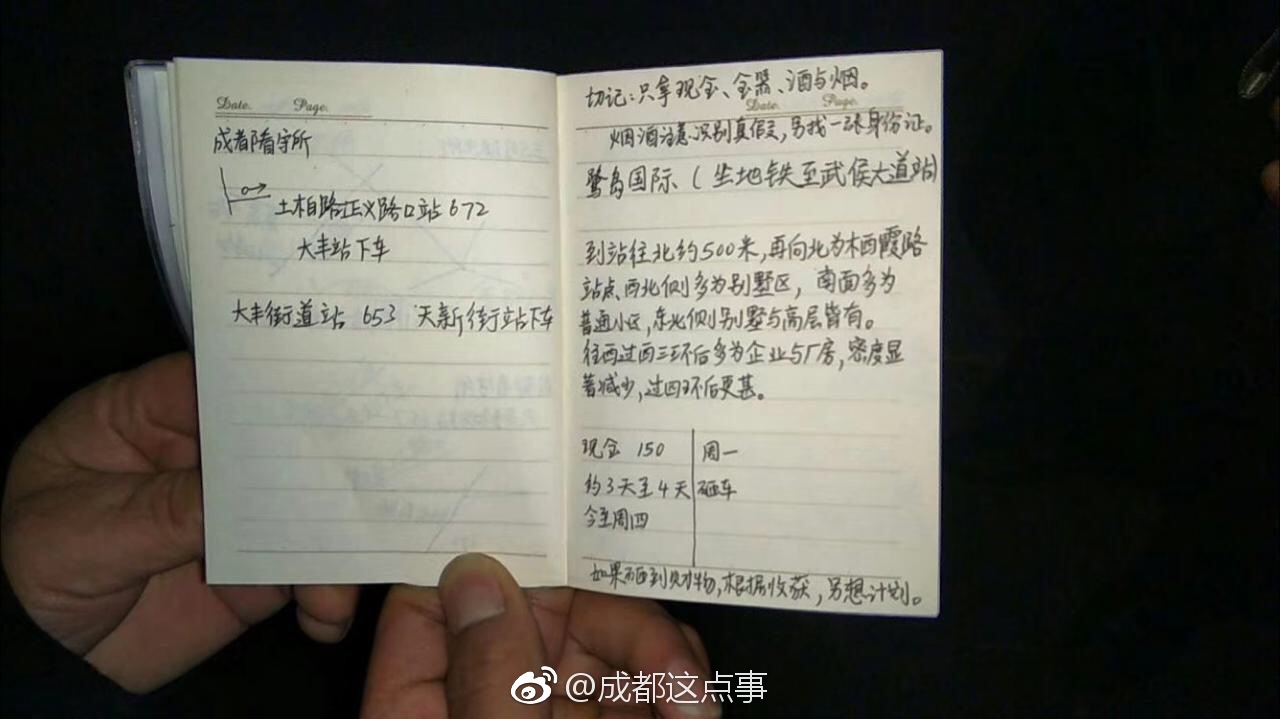 Date.
Page.
成都看守所
土柏路正义路口站 672
大丰站下车
大丰街道站 653 天新街站下车
切记:只拿现金、金器、酒与烟。
Date.
Page.
烟酒注意识别真假,另找一张身份证。
鹭岛国际、(坐地铁至武侯大道站)
到站往北约500米,再向北为栖霞路
站点西北侧多为别墅区,南面多为
普通小区,东北侧别墅与高层皆有。
往西过西三环后多为企业与厂房,密度显
著减少,过四环后更甚。
现金 150
周一
约3天至4天
砸车
今至周四
如果砸到财物,根据收获,另想计划。
@成都这点事